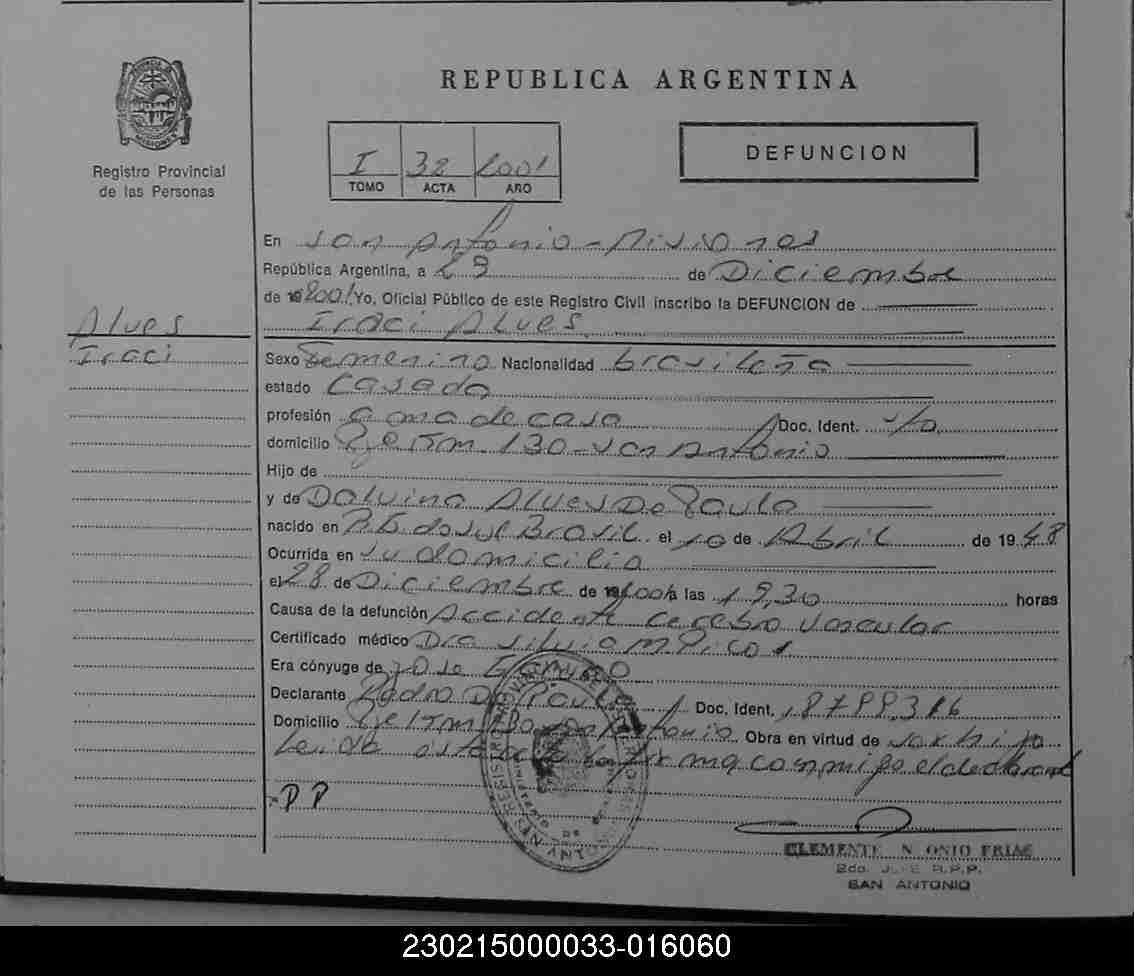 REPUBLICA ARGENTINA
PROVINCIA DE MISIONES
Registro Provincial
de las Personas
I 32 2001
TOMO ACTA AÑO
DEFUNCION
En San Antonio - Misiones
República Argentina, a 29 de Diciembre
de 19 2001 Yo, Oficial Público de este Registro Civil inscribo la DEFUNCION de
Iraci Alves
Alves
Iraci
Sexo Femenino Nacionalidad brasileña
estado Casada
profesión ama de casa Doc. Ident. s/o
domicilio 130 - San Antonio
Hijo de
y de Dalvina Alves De Paula
nacido en R.G. do Sul Brasil el 10 de Abril de 1948
Ocurrida en su domicilio
el 28 de Diciembre de 19 2001 a las 19,30 horas
Causa de la defunción Accidente Cerebro Vascular
Certificado médico Dra Silvia M Pico
Era cónyuge de
Declarante Pedro De Paula Doc. Ident. 18799316
Domicilio San Antonio Obra en virtud de ser hijo
Leida esta acta la firma conmigo el declarante
PP
CLEMENTE ONIO FRIAS
R.P.P.
SAN ANTONIO
230215000033-016060